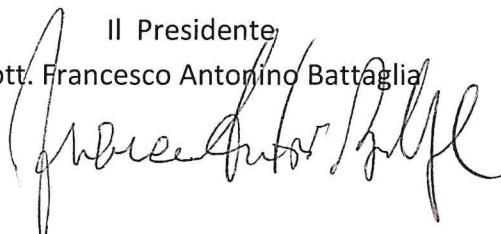 Il Presidente
ott. Francesco Antonino Battaglia